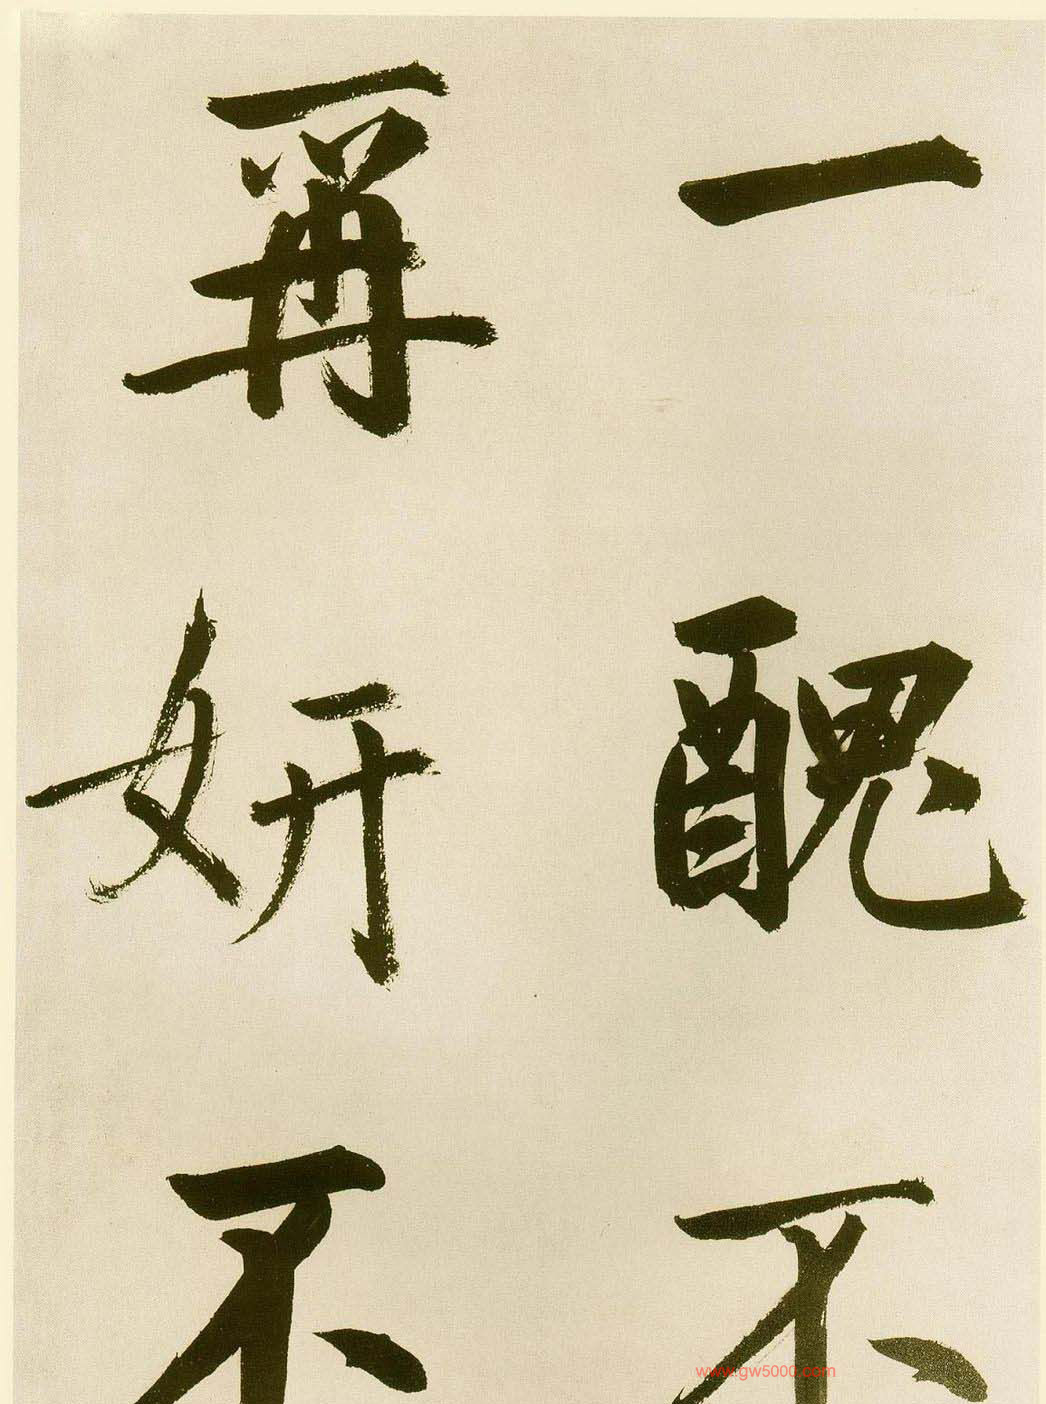 一醜不
再妍不
www.gw5000.com